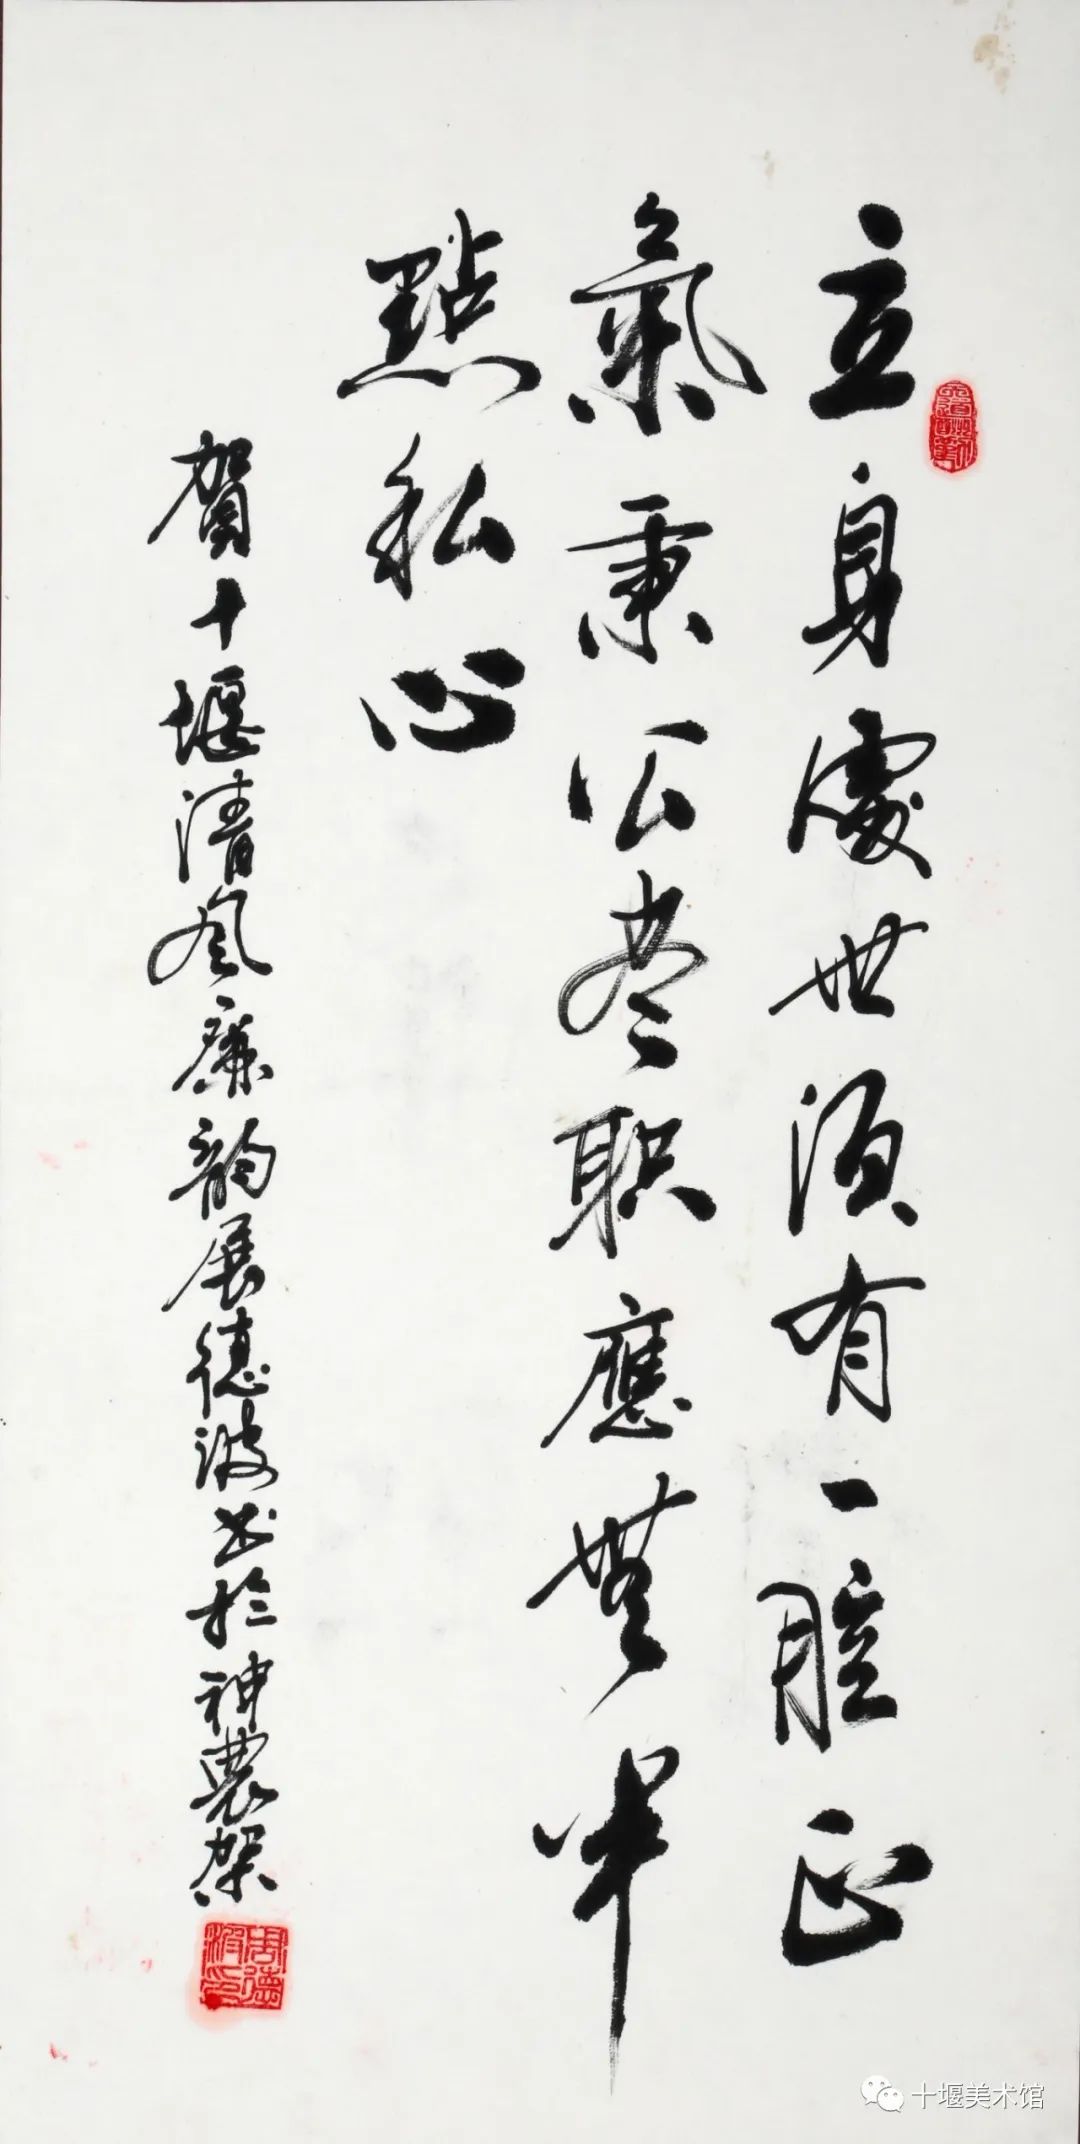 立身處世須有一腔正
氣秉公尽职應無半
點私心
賀十堰清风廉韵展德波书於神農架
周德波印
十堰美术馆